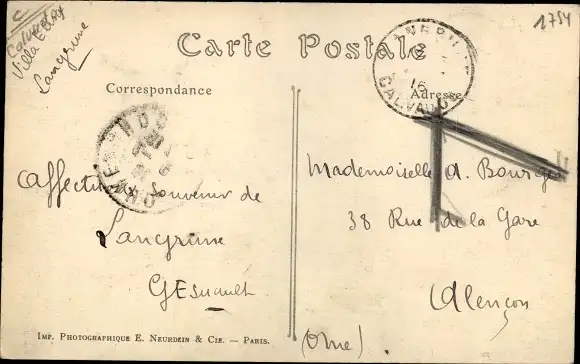 Calvados
Villa Eloy
Langrune
1754
Carte Postale
Correspondance
Adresse
CALVADOS
16
Affectueux souvenir de
Langrune
Mademoiselle A. Bourge
38 Rue de la Gare
Alençon
(Orne)
IMP. PHOTOGRAPHIQUE E. NEURDEIN & CIE. — PARIS.